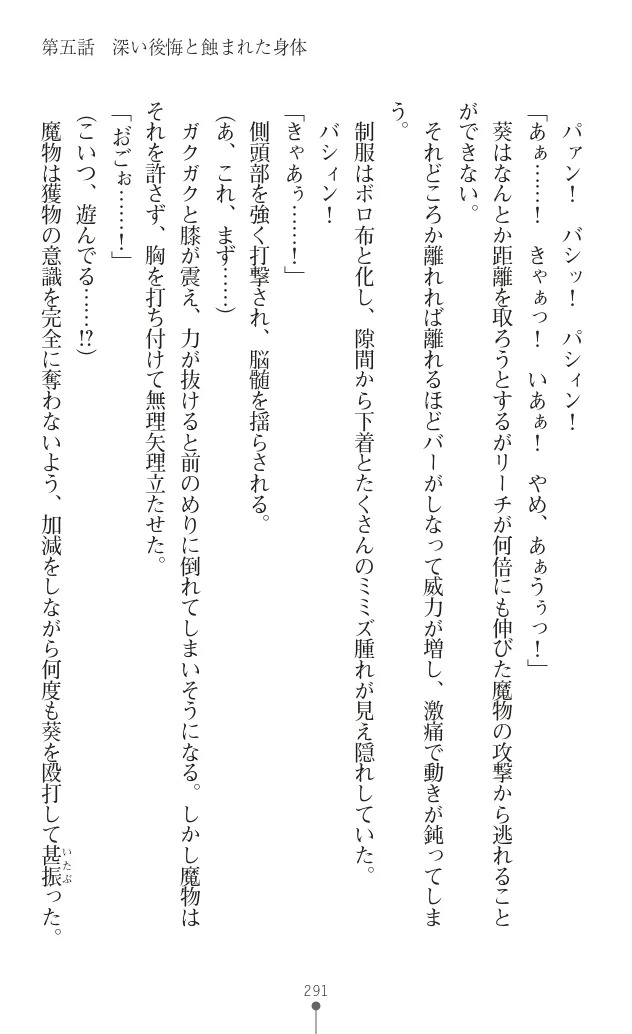 第五話　深い後悔と蝕まれた身体
　パァン！　バシッ！　パシィン！
「あぁ……！　きゃぁっ！　いあぁ！　やめ、あぁうぅっ！」
　葵はなんとか距離を取ろうとするがリーチが何倍にも伸びた魔物の攻撃から逃れること
ができない。
　それどころか離れれば離れるほどバーがしなって威力が増し、激痛で動きが鈍ってしま
う。
　制服はボロ布と化し、隙間から下着とたくさんのミミズ腫れが見え隠れしていた。
　バシィン！
「きゃあぅ……！」
　側頭部を強く打撃され、脳髄を揺らされる。
（あ、これ、まず……）
　ガクガクと膝が震え、力が抜けると前のめりに倒れてしまいそうになる。しかし魔物は
それを許さず、胸を打ち付けて無理矢理立たせた。
「おごぉ……！」
（こいつ、遊んでる……!?）
　魔物は獲物の意識を完全に奪わないよう、加減をしながら何度も葵を殴打して甚振った。
いたぶ
291